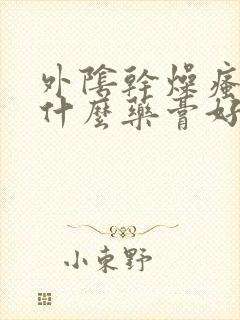 外陰幹燥瘙
什麼藥膏好
小東野